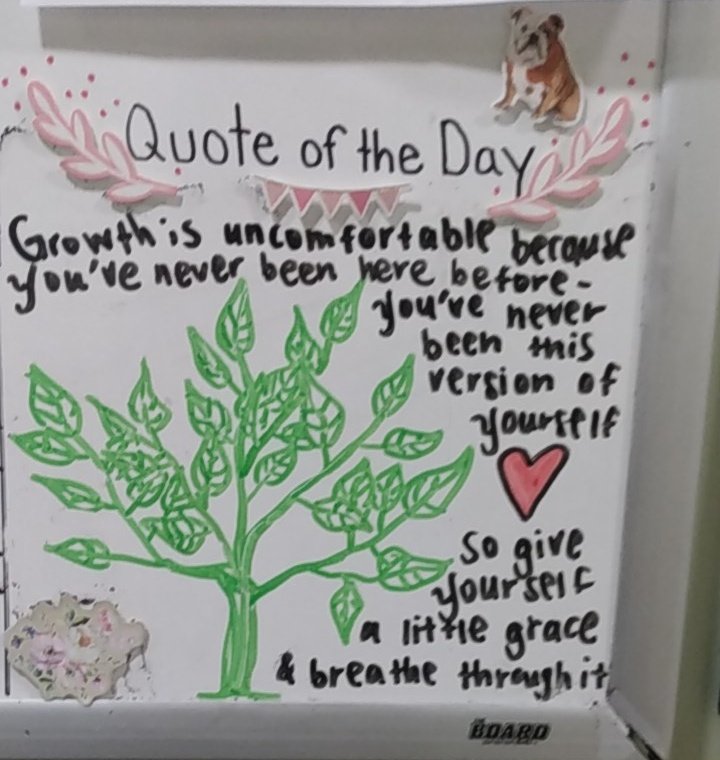 Quote of the Day
Growth is uncomfortable because
you've never been here before-
you've never
been this
version of
yourself
so give
yourself
a little grace
& breathe through it
THE BOARD